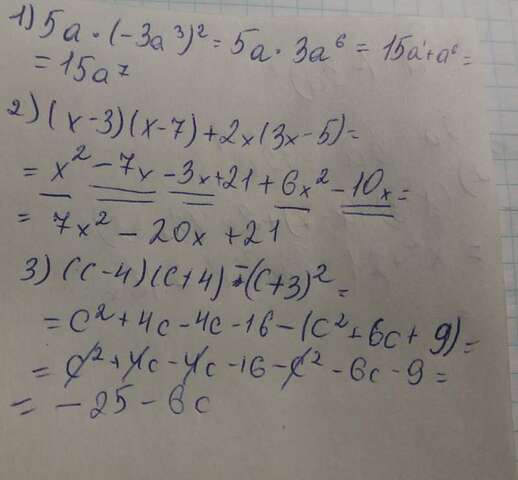 1) 5a · (-3a³)² = 5a · 3a⁶ = 15a¹+a⁶ =
= 15a⁷
2) (x-3)(x-7)+2x(3x-5)=
= x² -7x -3x+21+6x² -10x =
= 7x² - 20x + 21
3) (c-4)(c+4) -(c+3)² =
= c² + 4c - 4c - 16 - (c² + 6c + 9) =
= c² + 4c - 4c - 16 - c² - 6c - 9 =
= - 25 - 6c